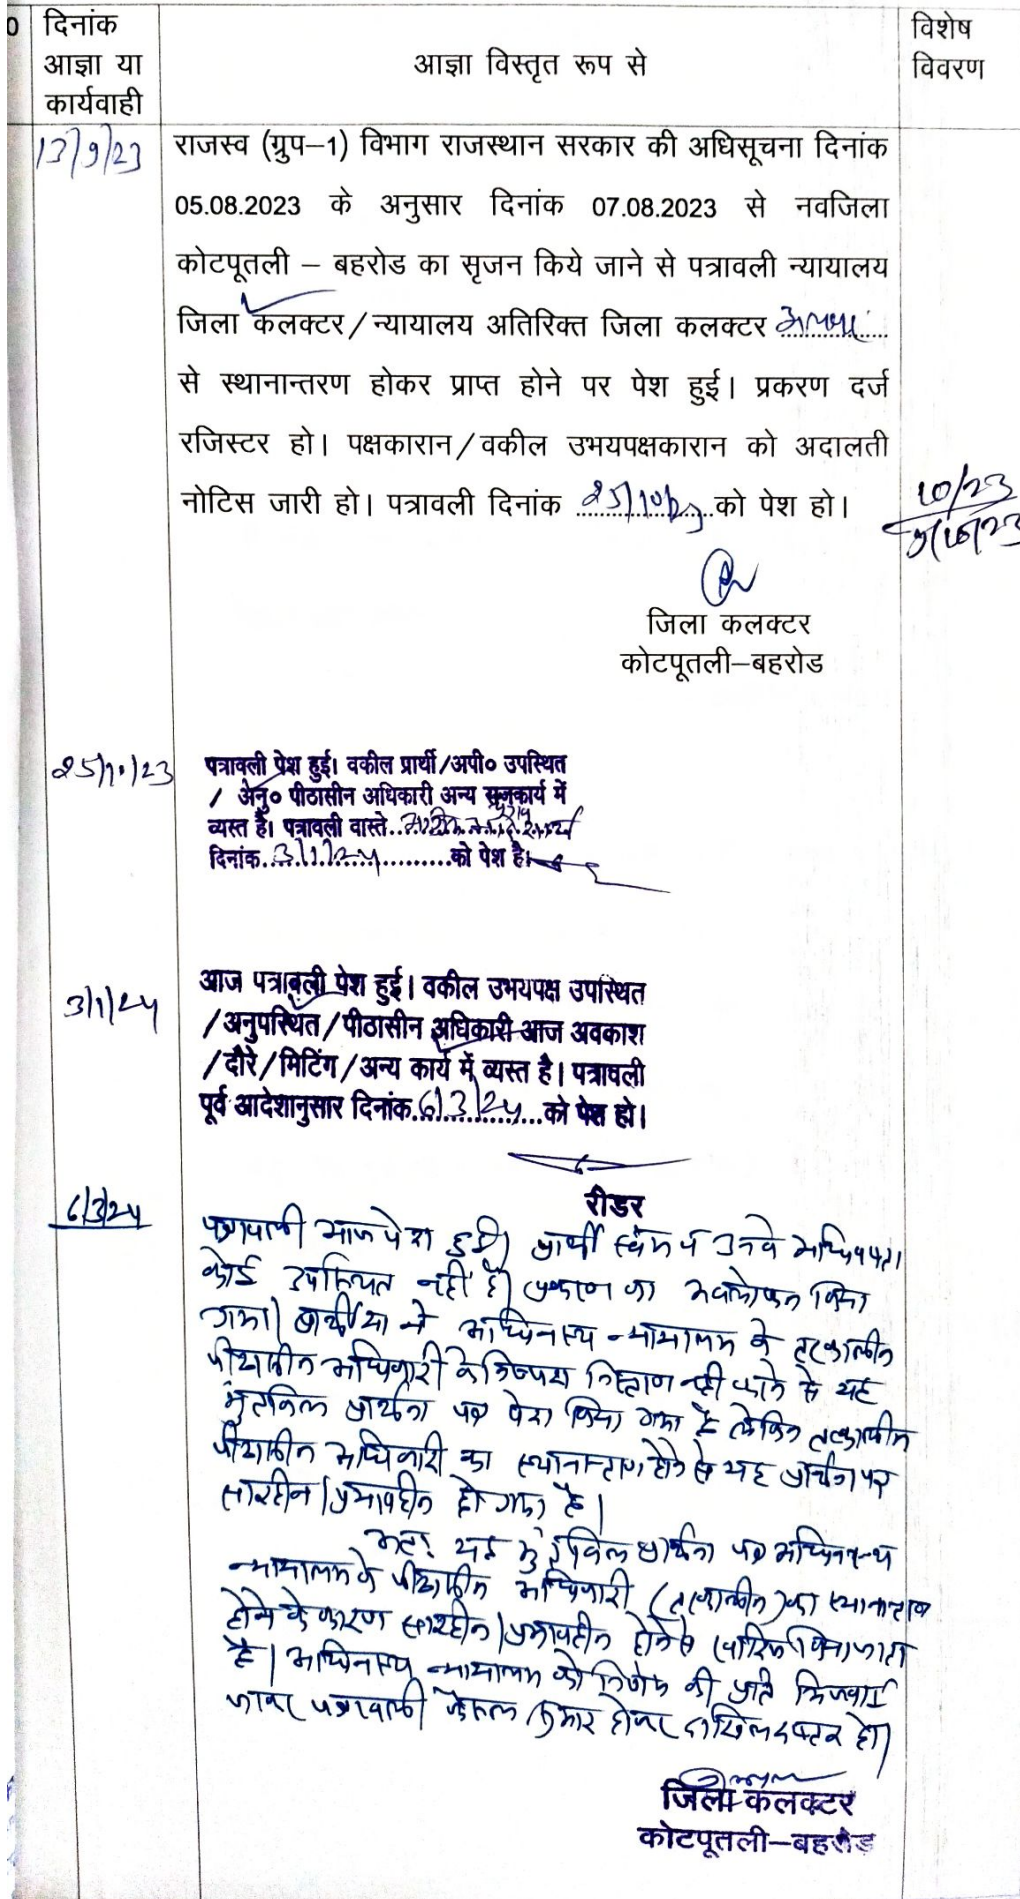 दिनांक
आज्ञा या
कार्यवाही
आज्ञा विस्तृत रूप से
विशेष
विवरण
13/9/23
राजस्व (ग्रुप–1) विभाग राजस्थान सरकार की अधिसूचना दिनांक
05.08.2023 के अनुसार दिनांक 07.08.2023 से नवजिला
कोटपूतली – बहरोड का सृजन किये जाने से पत्रावली न्यायालय
जिला कलक्टर/न्यायालय अतिरिक्त जिला कलक्टर अलवर
से स्थानान्तरण होकर प्राप्त होने पर पेश हुई। प्रकरण दर्ज
रजिस्टर हो। पक्षकारान/वकील उभयपक्षकारान को अदालती
नोटिस जारी हो। पत्रावली दिनांक 25/10/23 को पेश हो।
10/23
जिला कलक्टर
कोटपूतली–बहरोड
25/10/23
पत्रावली पेश हुई। वकील प्रार्थी/अपी० उपस्थित
/ अेनु० पीठासीन अधिकारी अन्य राजकार्य में
व्यस्त है। पत्रावली वास्ते
दिनांक 3/1/24 को पेश है।
3/1/24
आज पत्रावली पेश हुई। वकील उभयपक्ष उपस्थित
/अनुपस्थित/पीठासीन अधिकारी आज अवकाश
/दौरे/मिटिंग/अन्य कार्य में व्यस्त है। पत्रावली
पूर्व आदेशानुसार दिनांक 6/3/24 को पेश हो।
रीडर
6/3/24
पत्रावली आज पेश हुई। प्रार्थी स्वंम व उनके अधिवक्ता
कोई उपस्थित नहीं है। प्रकरण का अवलोकन किया
गया। प्रार्थीया ने अधिनस्थ न्यायालय के तत्कालीन
पीठासीन अधिकारी के निष्पक्ष निस्तारण नही करने से यह
मुंतकिल प्रार्थना पत्र पेश किया गया है लेकिन तत्कालीन
पीठासीन अधिकारी का स्थानान्तरण होने से यह प्रार्थना पत्र
सारहीन/प्रभावहीन हो गया है।
अतः यह मुंतकिल प्रार्थना पत्र अधिनस्थ
न्यायालय के पीठासीन अधिकारी (तत्कालीन) का स्थानान्तरण
होने के कारण सारहीन/प्रभावहीन होने से खारिज किया जाता
है। अधिनस्थ न्यायालय को निर्णय की प्रति भिजवाई
जाकर पत्रावली फैसल शुमार होकर दाखिल दफ्तर हो।
जिला कलक्टर
कोटपूतली–बहरोड